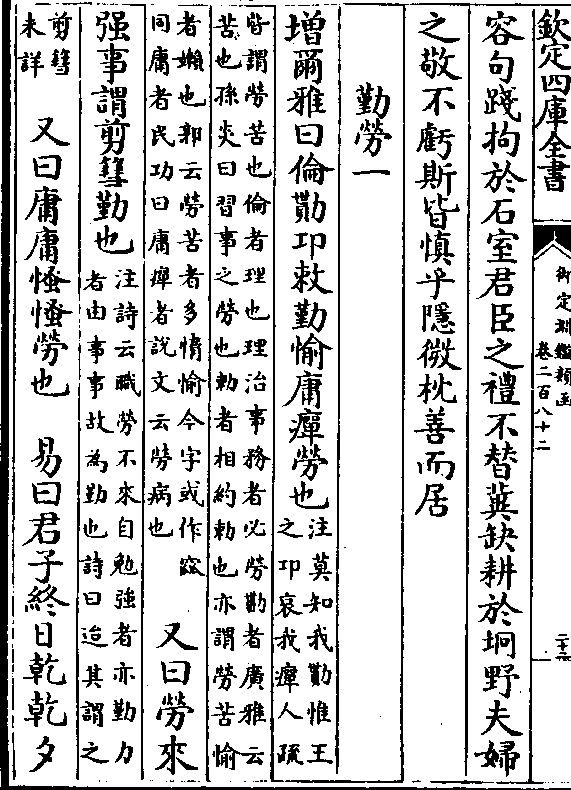 欽定四庫全書
御定淵鑑類函
卷二百八十二
二十二
容句踐拘於石室君臣之禮不替冀缺耕於坰野夫婦
之敬不虧斯皆慎乎隱微枕善而居
勤勞一
增爾雅曰倫勩卭敕勤愉庸癉勞也
注莫知我勩惟王
之卭哀我癉人疏
皆謂勞苦也倫者理也理治事務者必勞勩者廣雅云
苦也孫炎曰習事之勞也勅者相約勅也亦謂勞苦愉
者嬾也郭云勞苦者多惰愉今字或作窳
同庸者民功曰庸癉者說文云勞病也
又曰勞來
强事謂剪篲勤也
注詩云職勞不來自勉強者亦勤力
者由事事故為勤也詩曰迨其謂之
剪篲
未詳
又曰庸庸慅慅勞也
易曰君子終日乾乾夕